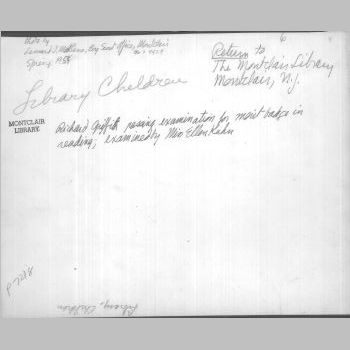 Photo by
Leonard J. Boy Scout Office, Montclair
Spring 1958
6
Return to
The Montclair Library
Montclair, N.J.
Library Children
MONTCLAIR
LIBRARY
Richard Griffith passing examination for merit badge in
reading; examined by Miss Ellen Kuhn
P 7218
Library, Children